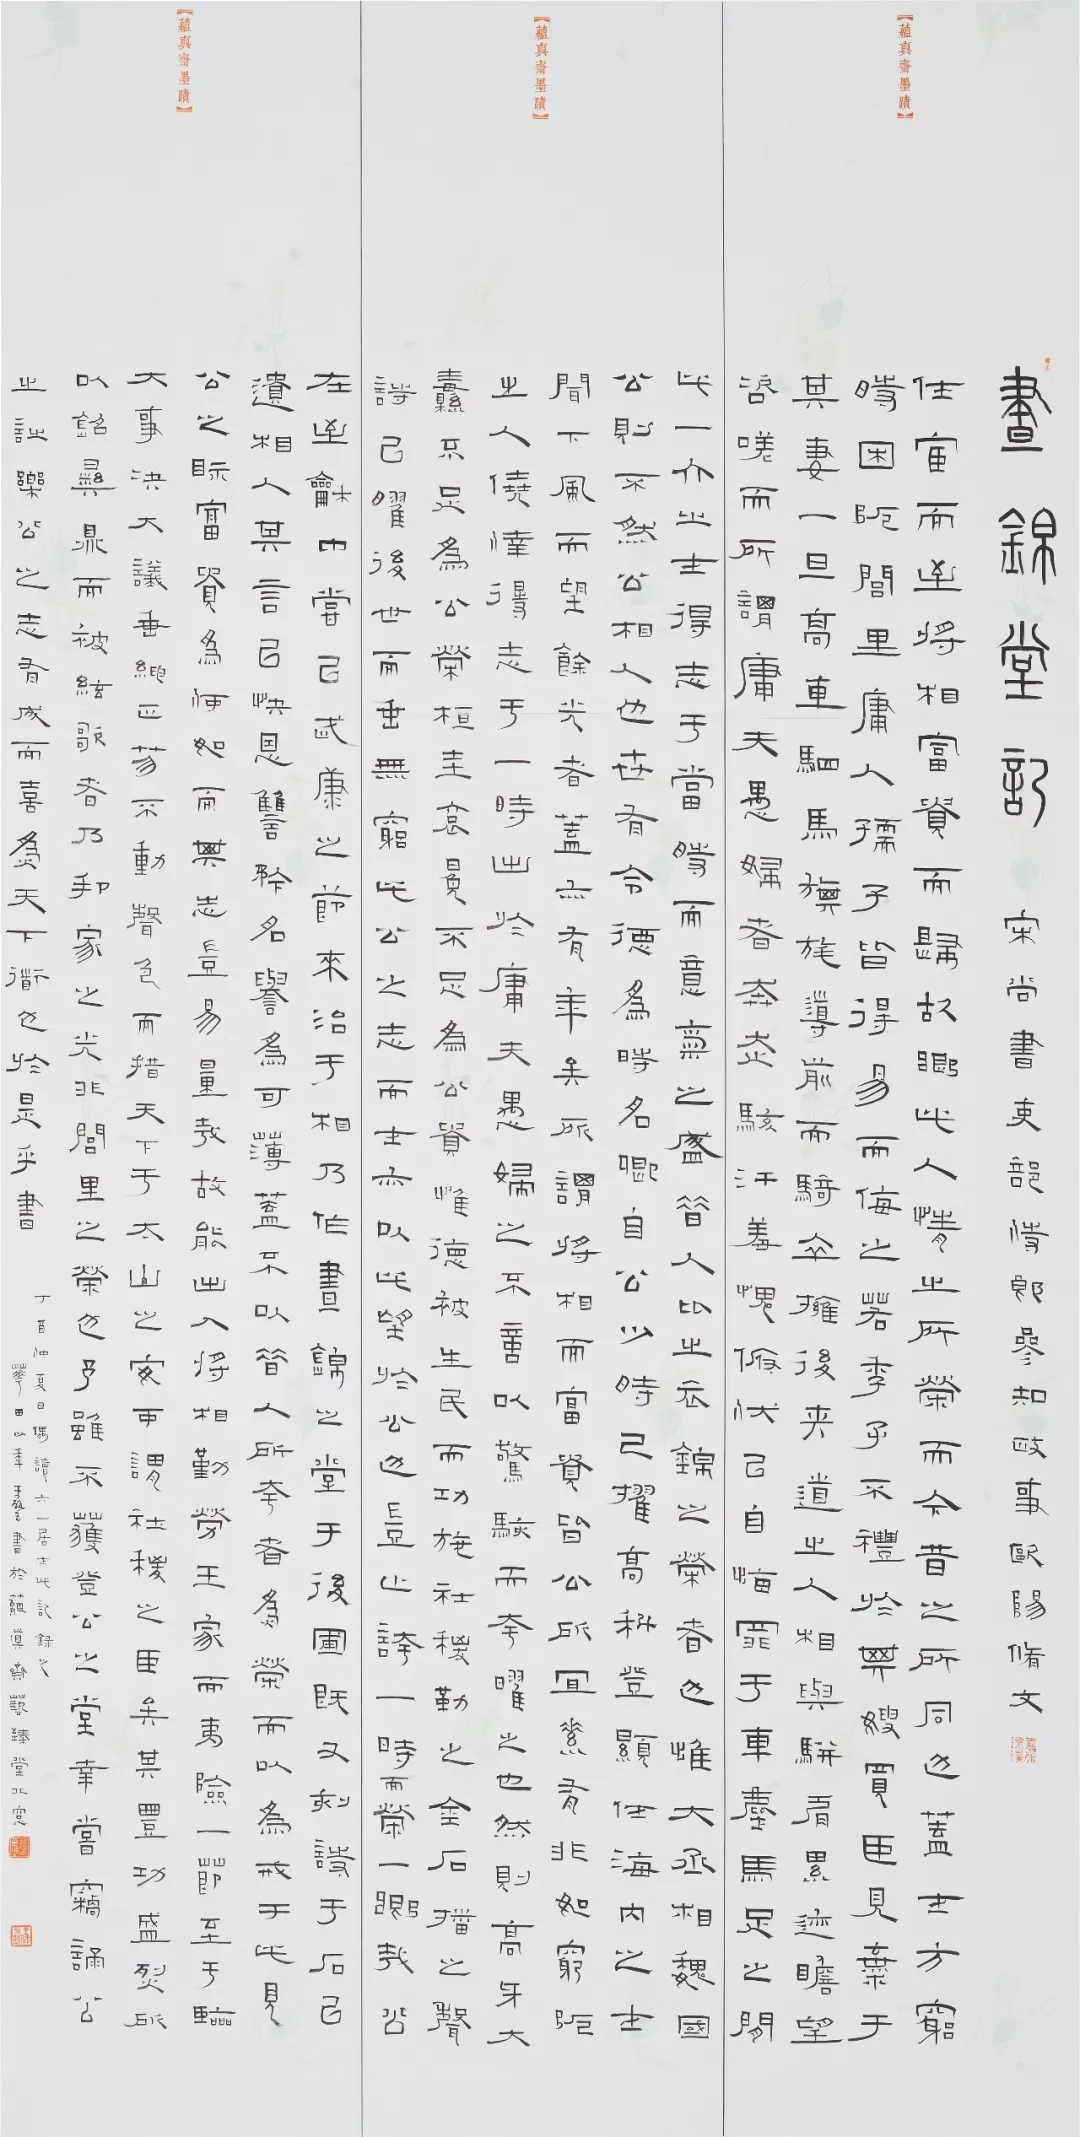 蘊真齋墨蹟
蘊真齋墨蹟
蘊真齋墨蹟
晝錦堂記 宋尚書吏部侍郎參知政事歐陽脩文
仕宦而至將相富貴而歸故鄉此人情之所榮而今昔之所同也蓋士方窮
時困阨閭里庸人孺子皆得易而侮之若季子不禮於其嫂買臣見棄于
其妻一旦高車駟馬旗旄導前而騎卒擁後夾道之人相與駢肩累迹瞻望
咨嗟而所謂庸夫愚婦者奔走駭汗羞愧俯伏已自悔罪于車塵馬足之間
此一介之士得志于當時而意氣之盛昔人比之衣錦之榮者也惟大丞相魏國
公則不然公相人也世有令德為時名卿自公少時已擢高科登顯仕海內之士
聞下風而望餘光者蓋亦有年矣所謂將相而富貴皆公所宜素有非如窮阨
之人僥倖得志于一時出於庸夫愚婦之不意以驚駭而夸耀之也然則高牙大
纛不足為公榮桓圭袞冕不足為公貴惟德被生民而功施社稷勒之金石播之聲
詩已耀後世而垂無窮此公之志而士亦以此望於公也豈止誇一時而榮一鄉哉公
在至龢中嘗已武康之節來治于相乃作晝錦之堂于後圃既又刻詩于石已
遺相人其言已快恩讐矜名譽為可薄蓋不以昔人所夸者為榮而以為戒于此見
公之眎富貴為何如而其志豈易量哉故能出入將相勤勞王家而夷險一節至于臨
大事決大議垂紳正笏不動聲色而措天下于太山之安可謂社稷之臣矣其豐功盛烈所
以銘彝鼎而被絃歌者乃邦家之光非閭里之榮也予雖不獲登公之堂幸嘗竊誦公
之詩樂公之志有成而喜為天下道也於是乎書
丁酉仲夏日偶讀六一居士此記錄之
書於蘊真齋藝臻堂北窗